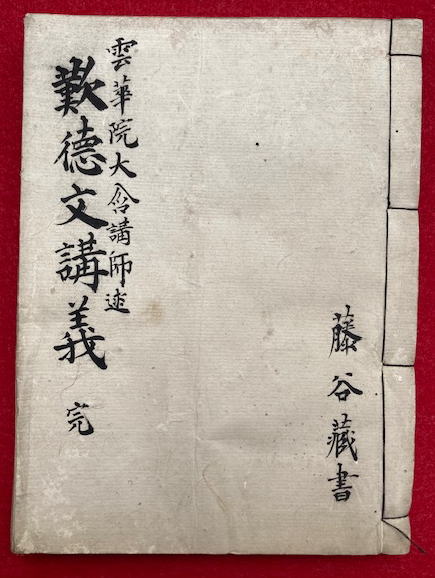 雲華院大含講師述
歎德文講義 完
藤谷藏書